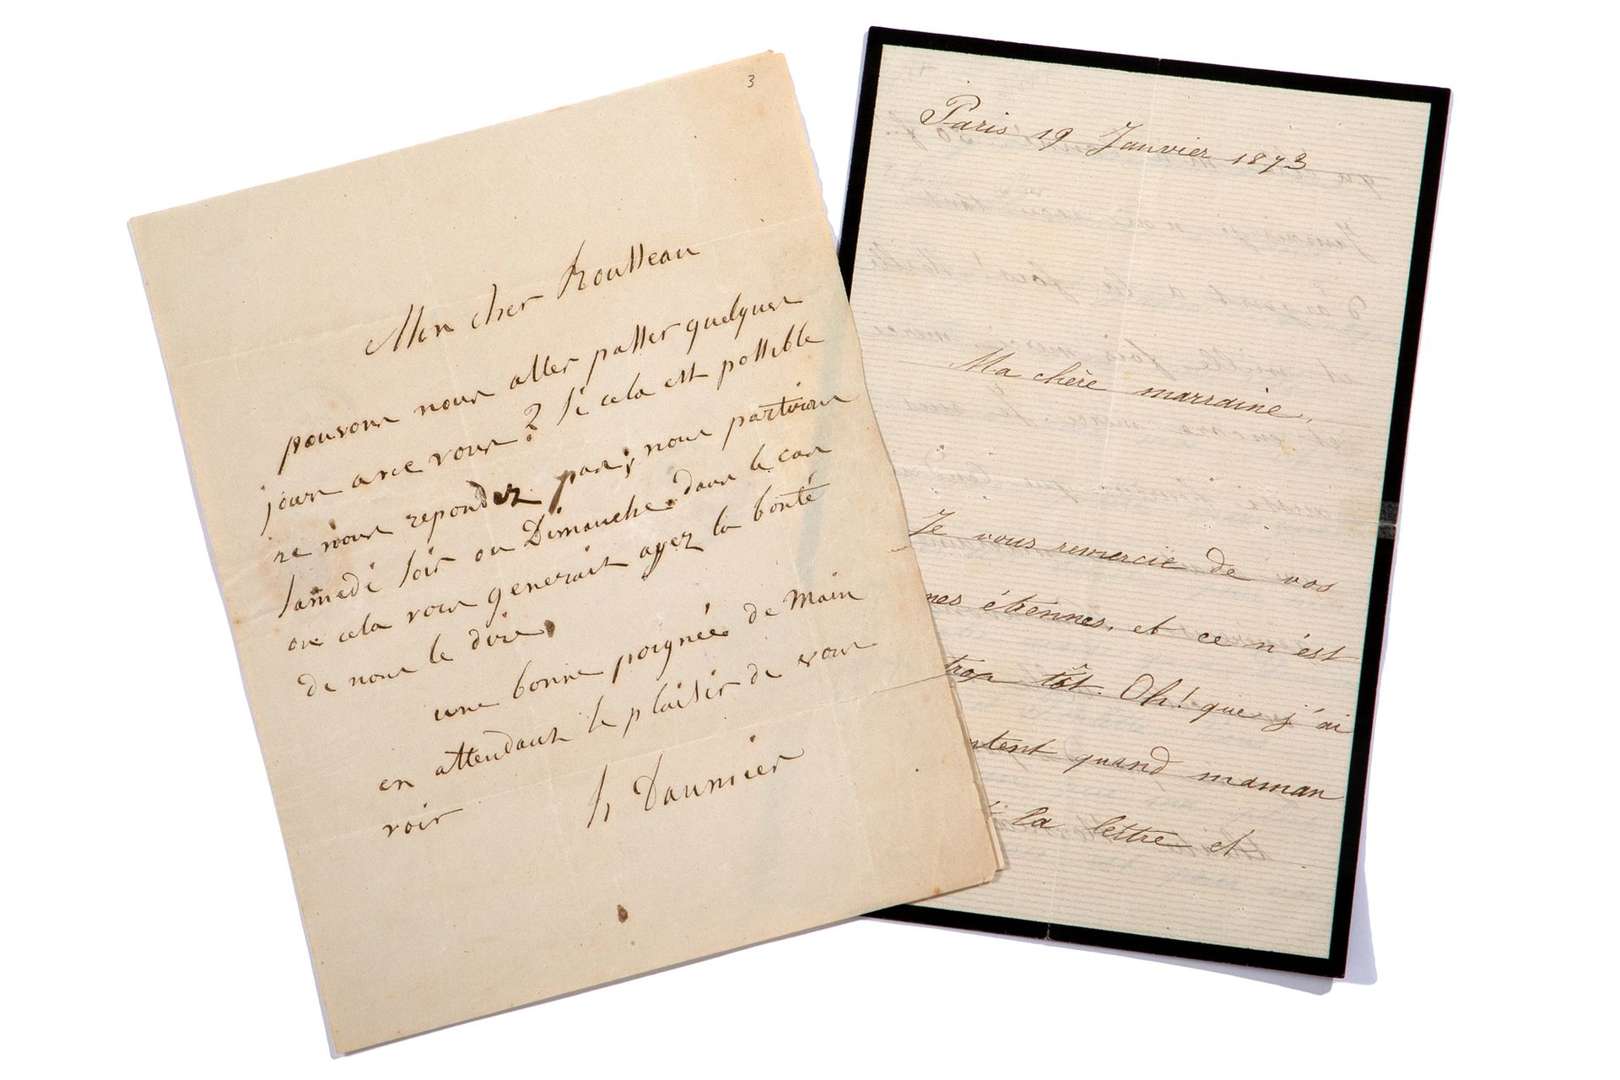 3
Mon cher Rousseau
pouvons nous aller passer quelques
jours avec vous? Si cela est possible
ne nous repondez pas, nous partirons
samedi soir ou Dimanche. dans le cas
ou cela vous generait ayez la bonté
de nous le dire
une bonne poignée de Main
en attendant le plaisir de vous
voir
h Daumier
Paris 19 Janvier 1873
Ma chère marraine,
Je vous remercie de vos
étrennes, et ce n'est
trop tôt. Oh! que j'ai
quand maman
la lettre et